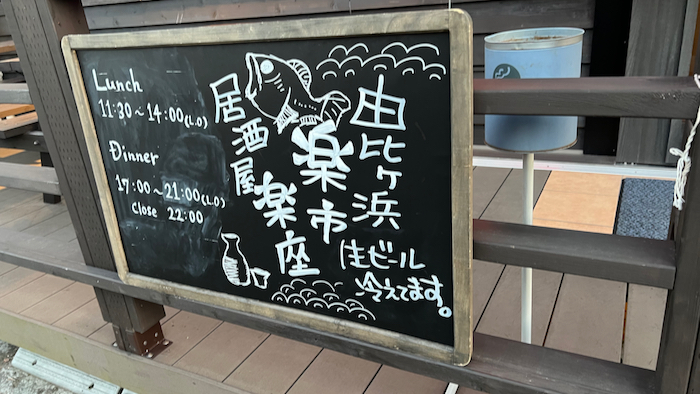 Lunch
11:30～14:00(L.O)
Dinner
17:00～21:00(L.O)
close 22:00
由比ヶ浜
楽市
楽座
居酒屋
生ビール
冷えてます。